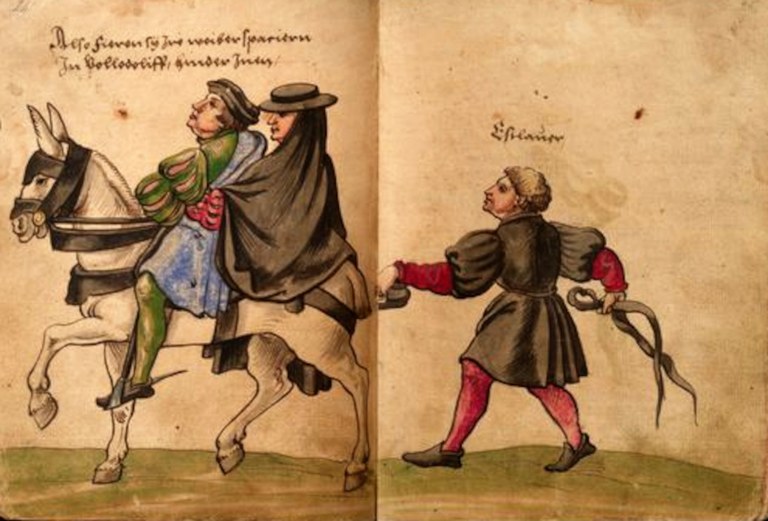 Also fieren sy Ire weiber spaciern
In Volledoliff, hinder Inen,
Esclauer